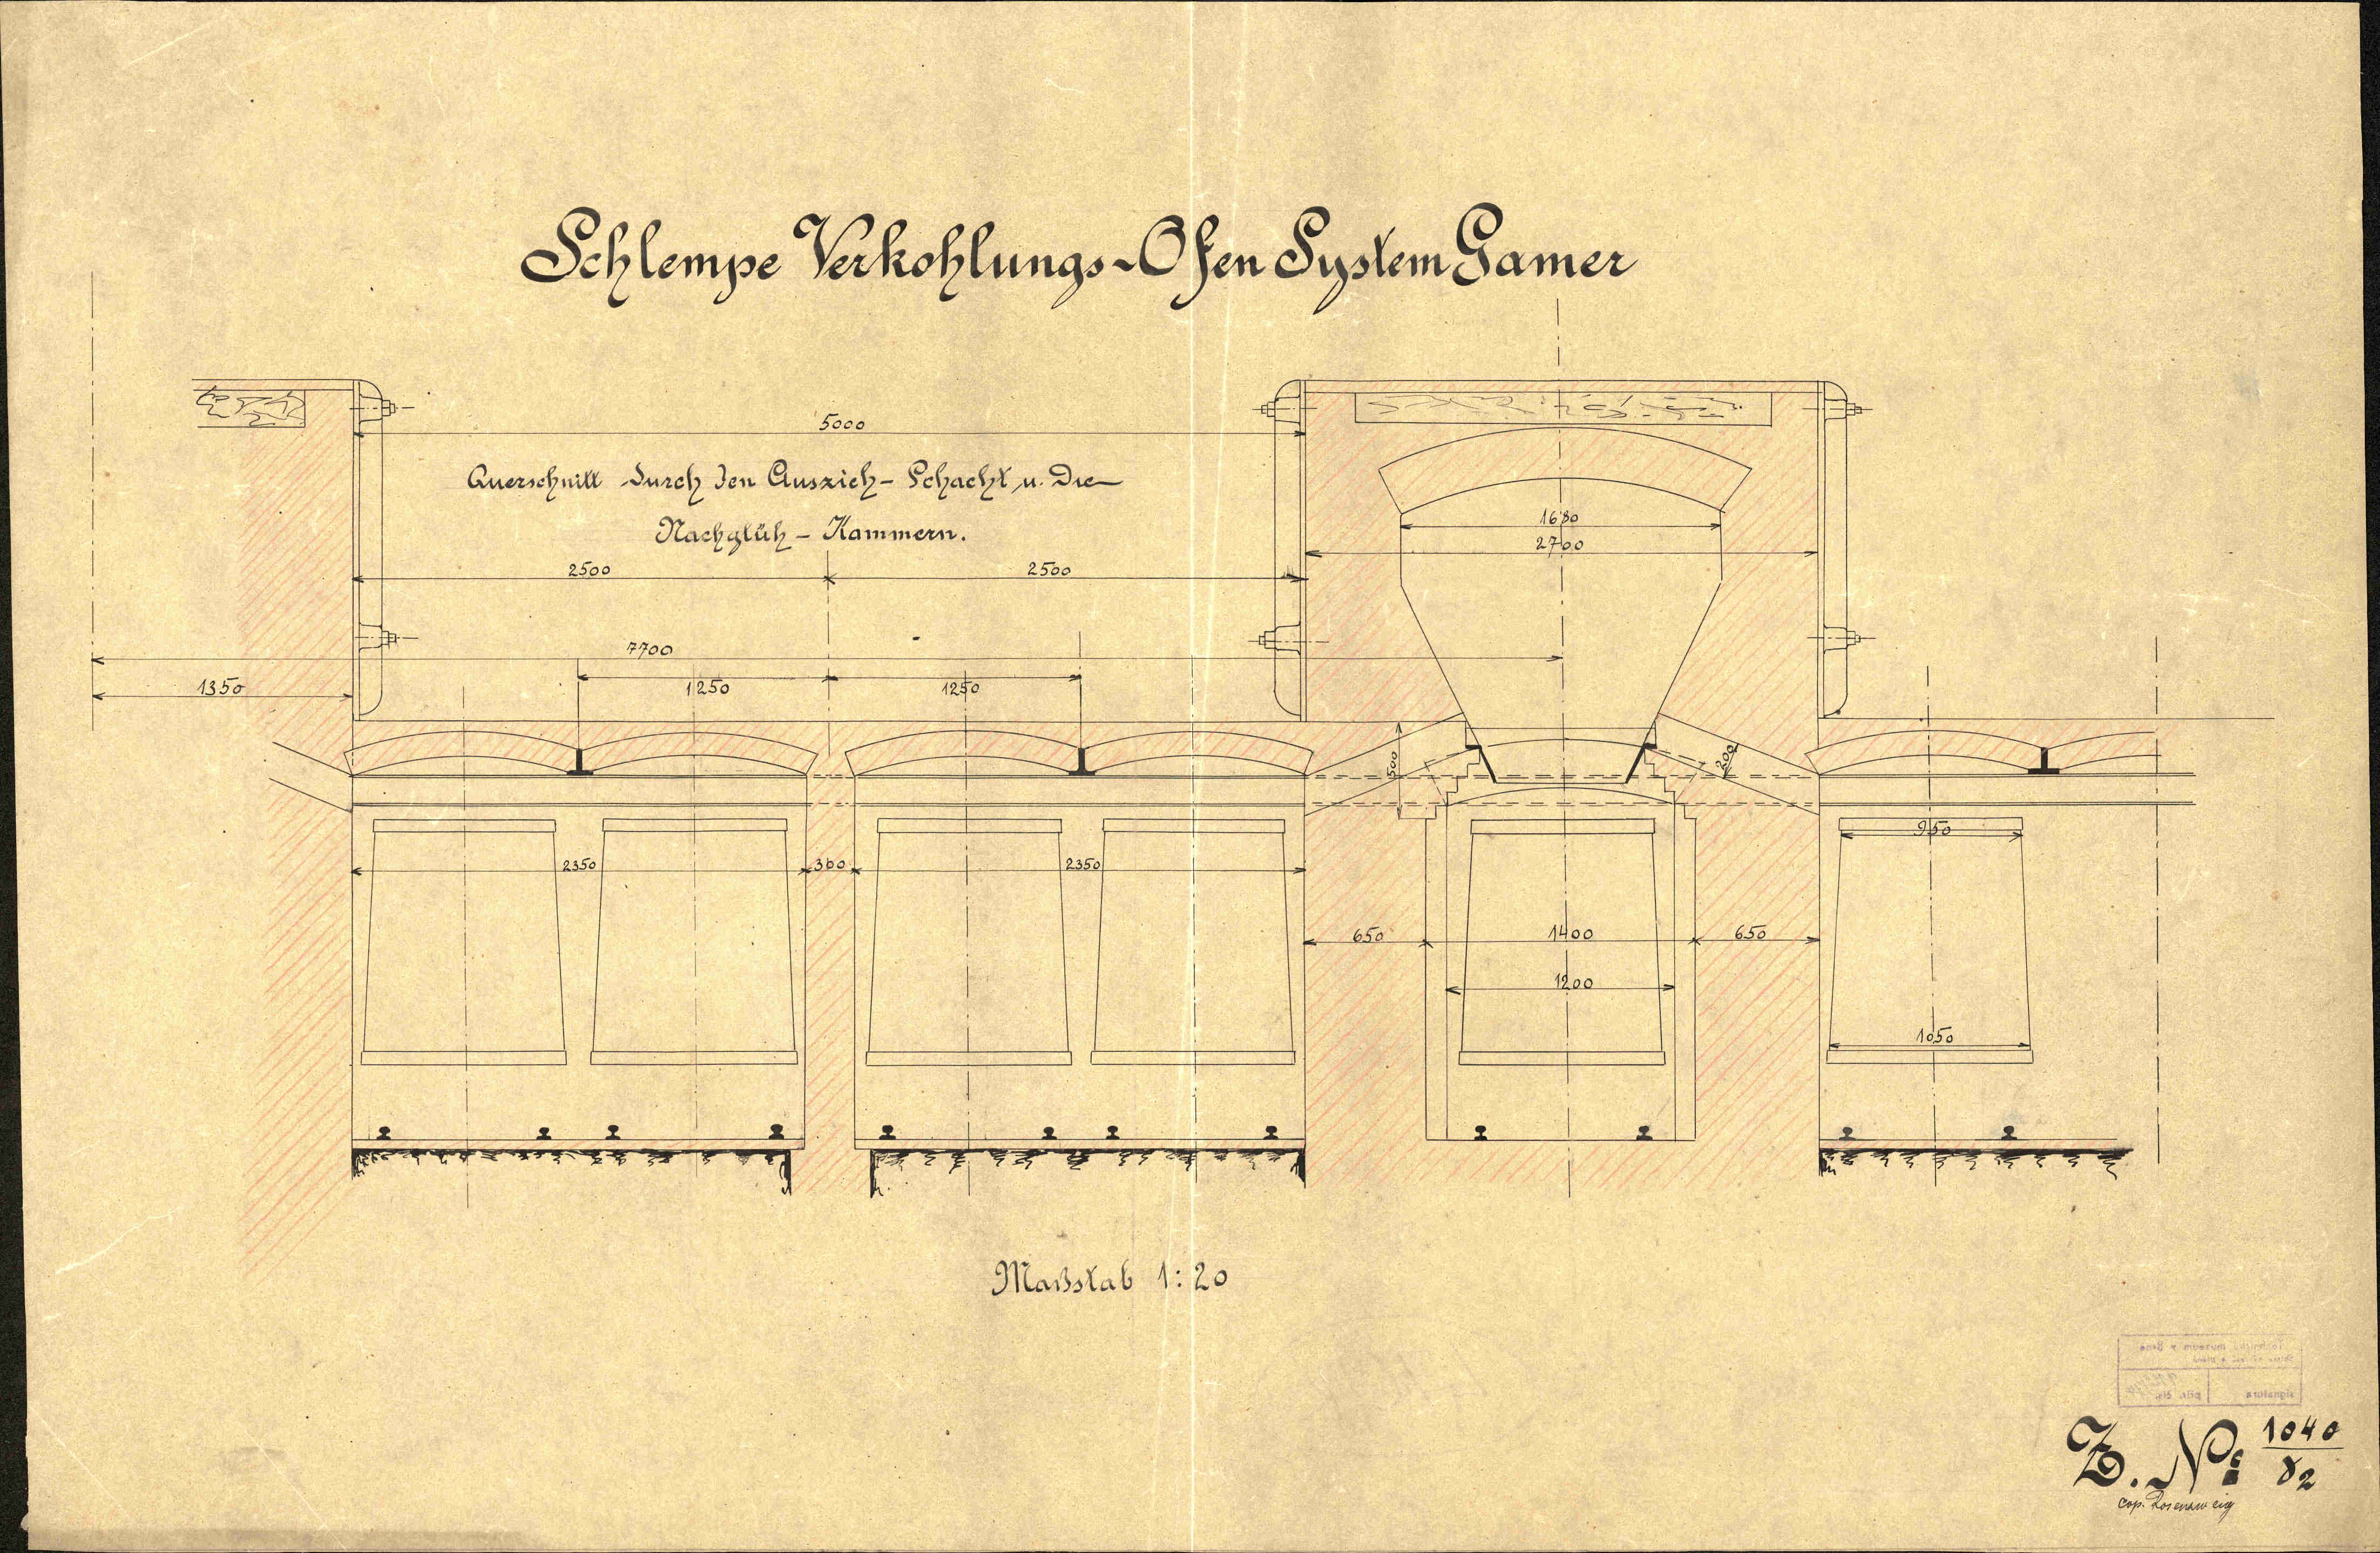 Schlempe Verkohlungs-Ofen System Gamer
5000
Querschnitt durch den Auszieh-Schacht u. die
Nachglüh-Kammern.
1680
2700
2500 2500
7700
1350 1250 1250
500 200
950
2350 360 2350
650 1400 650
1200
1050
Maßstab 1:20
Technické museum v Brně
signatura přír. čís.
Z. No: 1040/γ2
cop. Rosenzweig